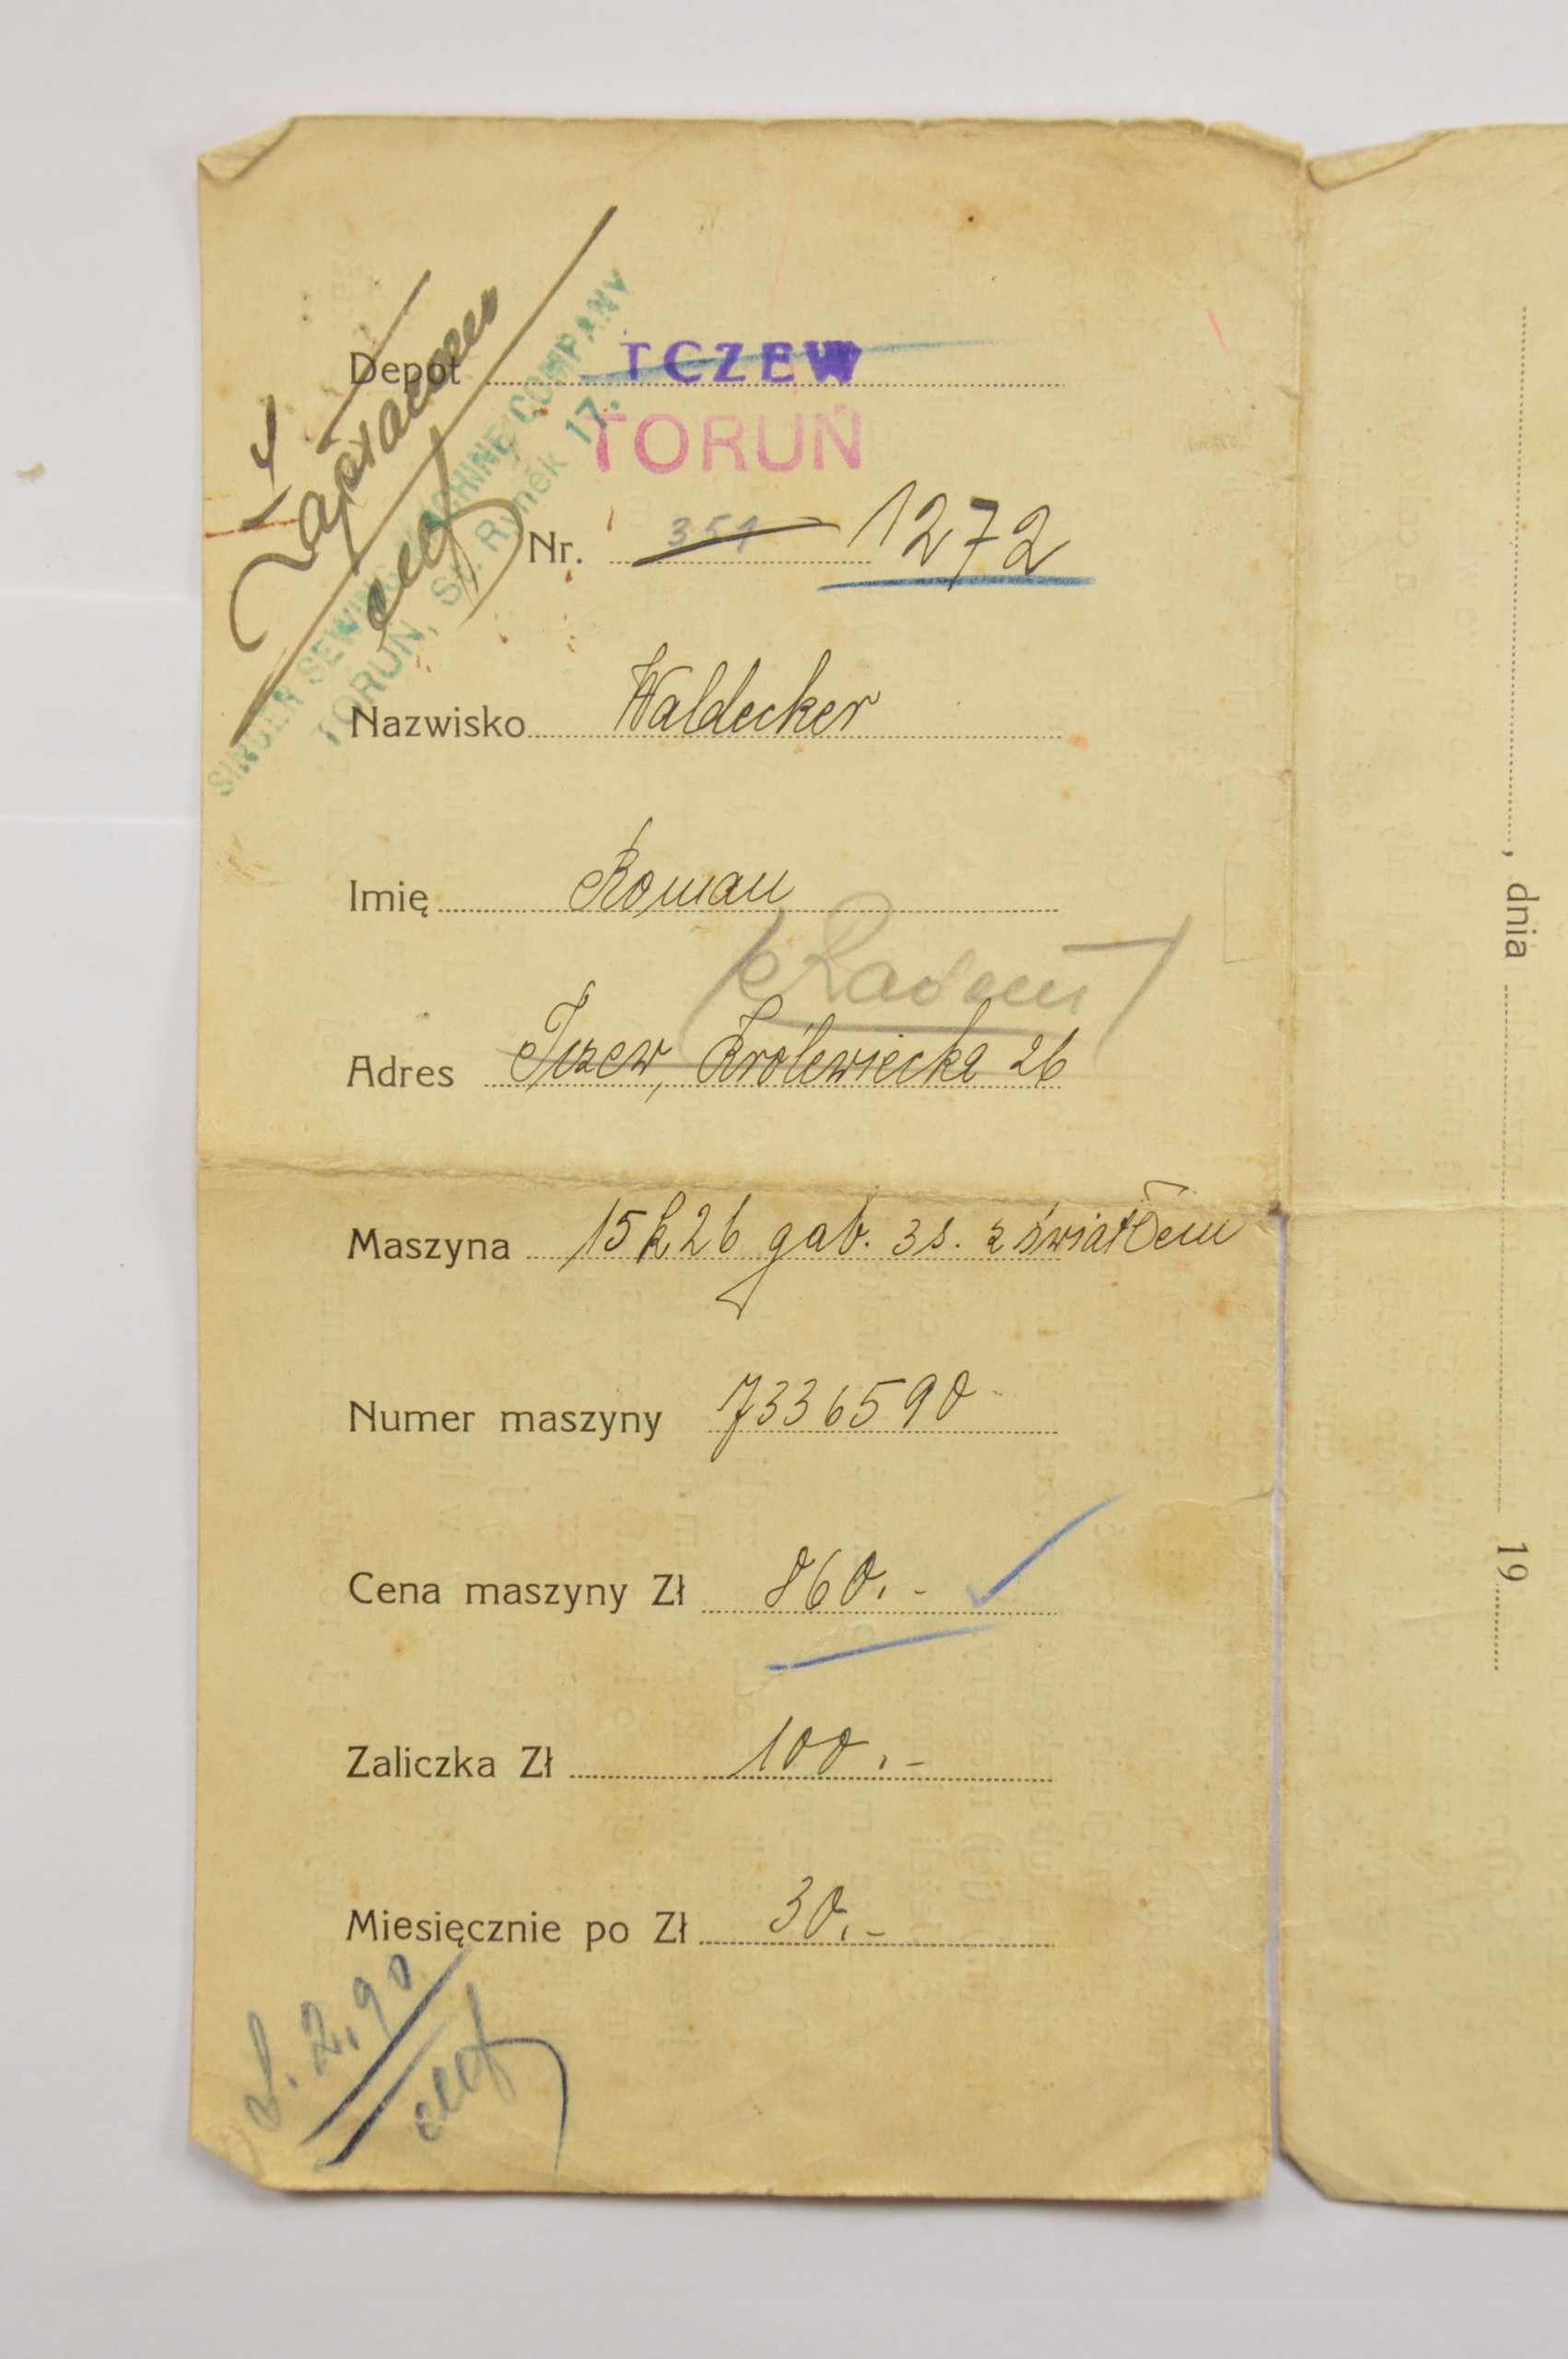 Zapłacono
SINGER SEWING MACHINE COMPANY
TORUŃ, St. Rynek 17.
Depot TCZEW
TORUŃ
Nr. 351 1272
Nazwisko Waldecker
Imię Roman
Adres Tczew, Królewiecka 26
Maszyna 15k26 gab. 3s. z światłem
Numer maszyny 7336590
Cena maszyny Zł 860.-
Zaliczka Zł 100.-
Miesięcznie po Zł 30.-
2,90
, dnia 19